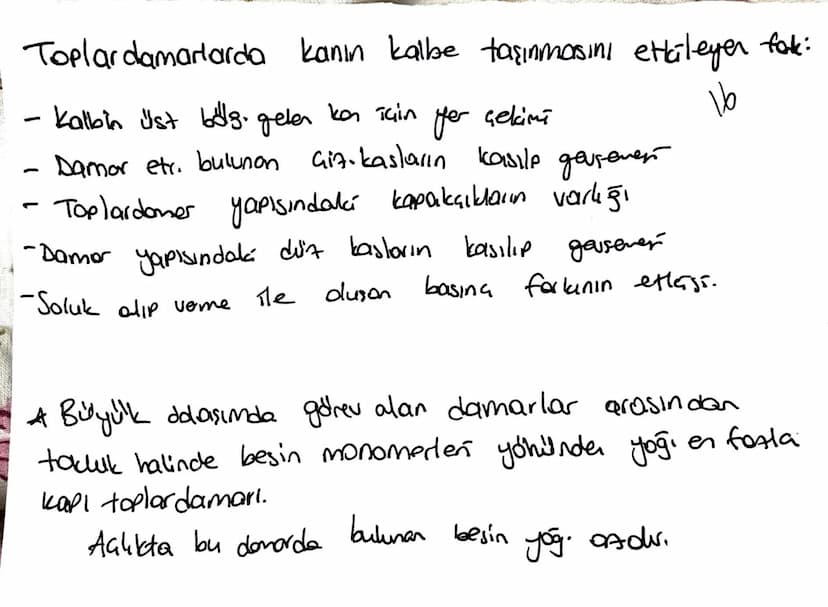 Toplardamarlarda kanın kalbe taşınmasını etkileyen fak:
- Kalbin üst bölg. gelen kan için yer çekimi
- Damar etr. bulunan çiz. kasların kasılıp gevşemesi
- Toplardamar yapısındaki kapakçıkların varlığı
- Damar yapısındaki düz kasların kasılıp gevşemesi
- Soluk alıp verme ile oluşan basınç farkının etkisi.
Büyük dolaşımda görev alan damarlar arasından
tokluk halinde besin monomerleri yönünden yoğ. en fazla
kapı toplardamarı.
Açlıkta bu damarda bulunan besin yoğ. azdır.